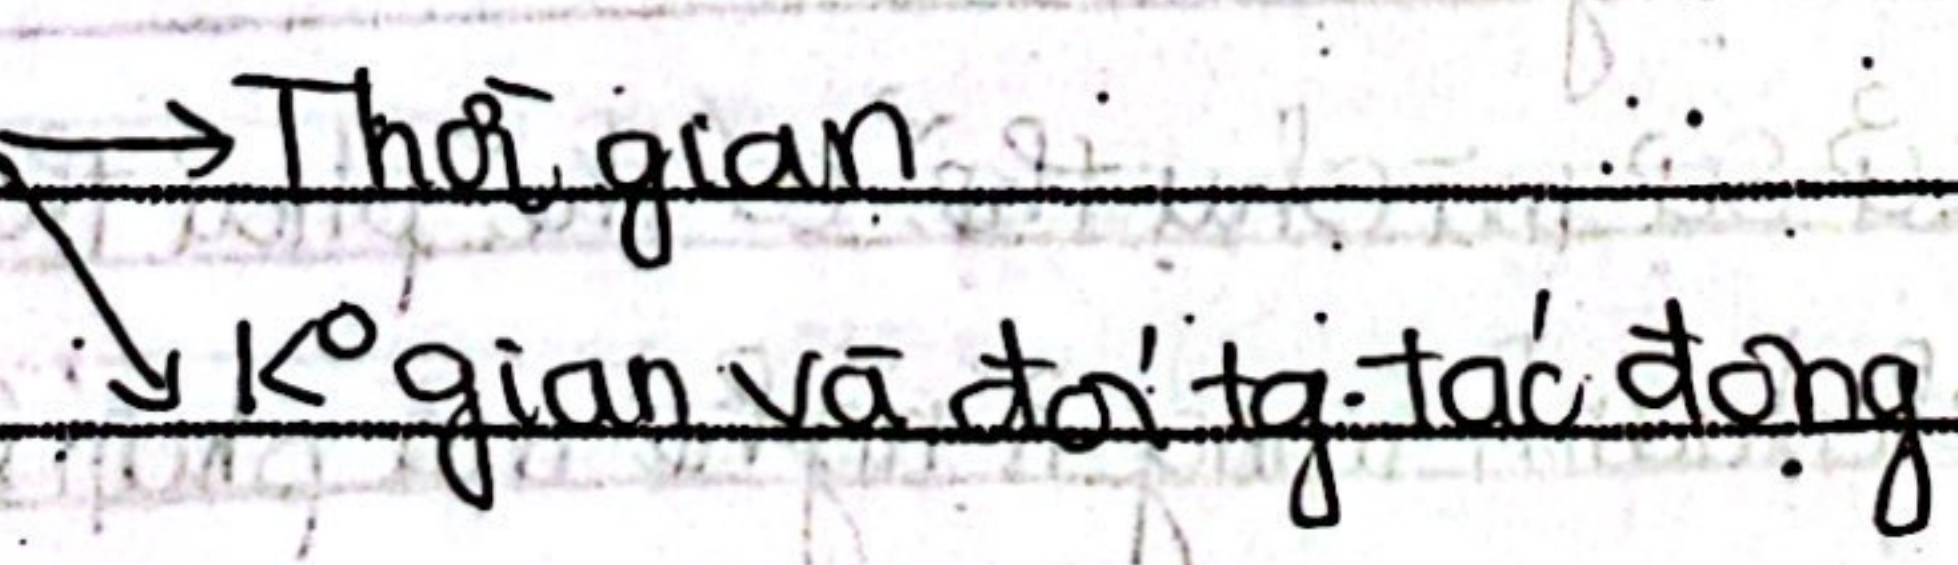 → Thời gian
↘ K° gian và đối tg tác động